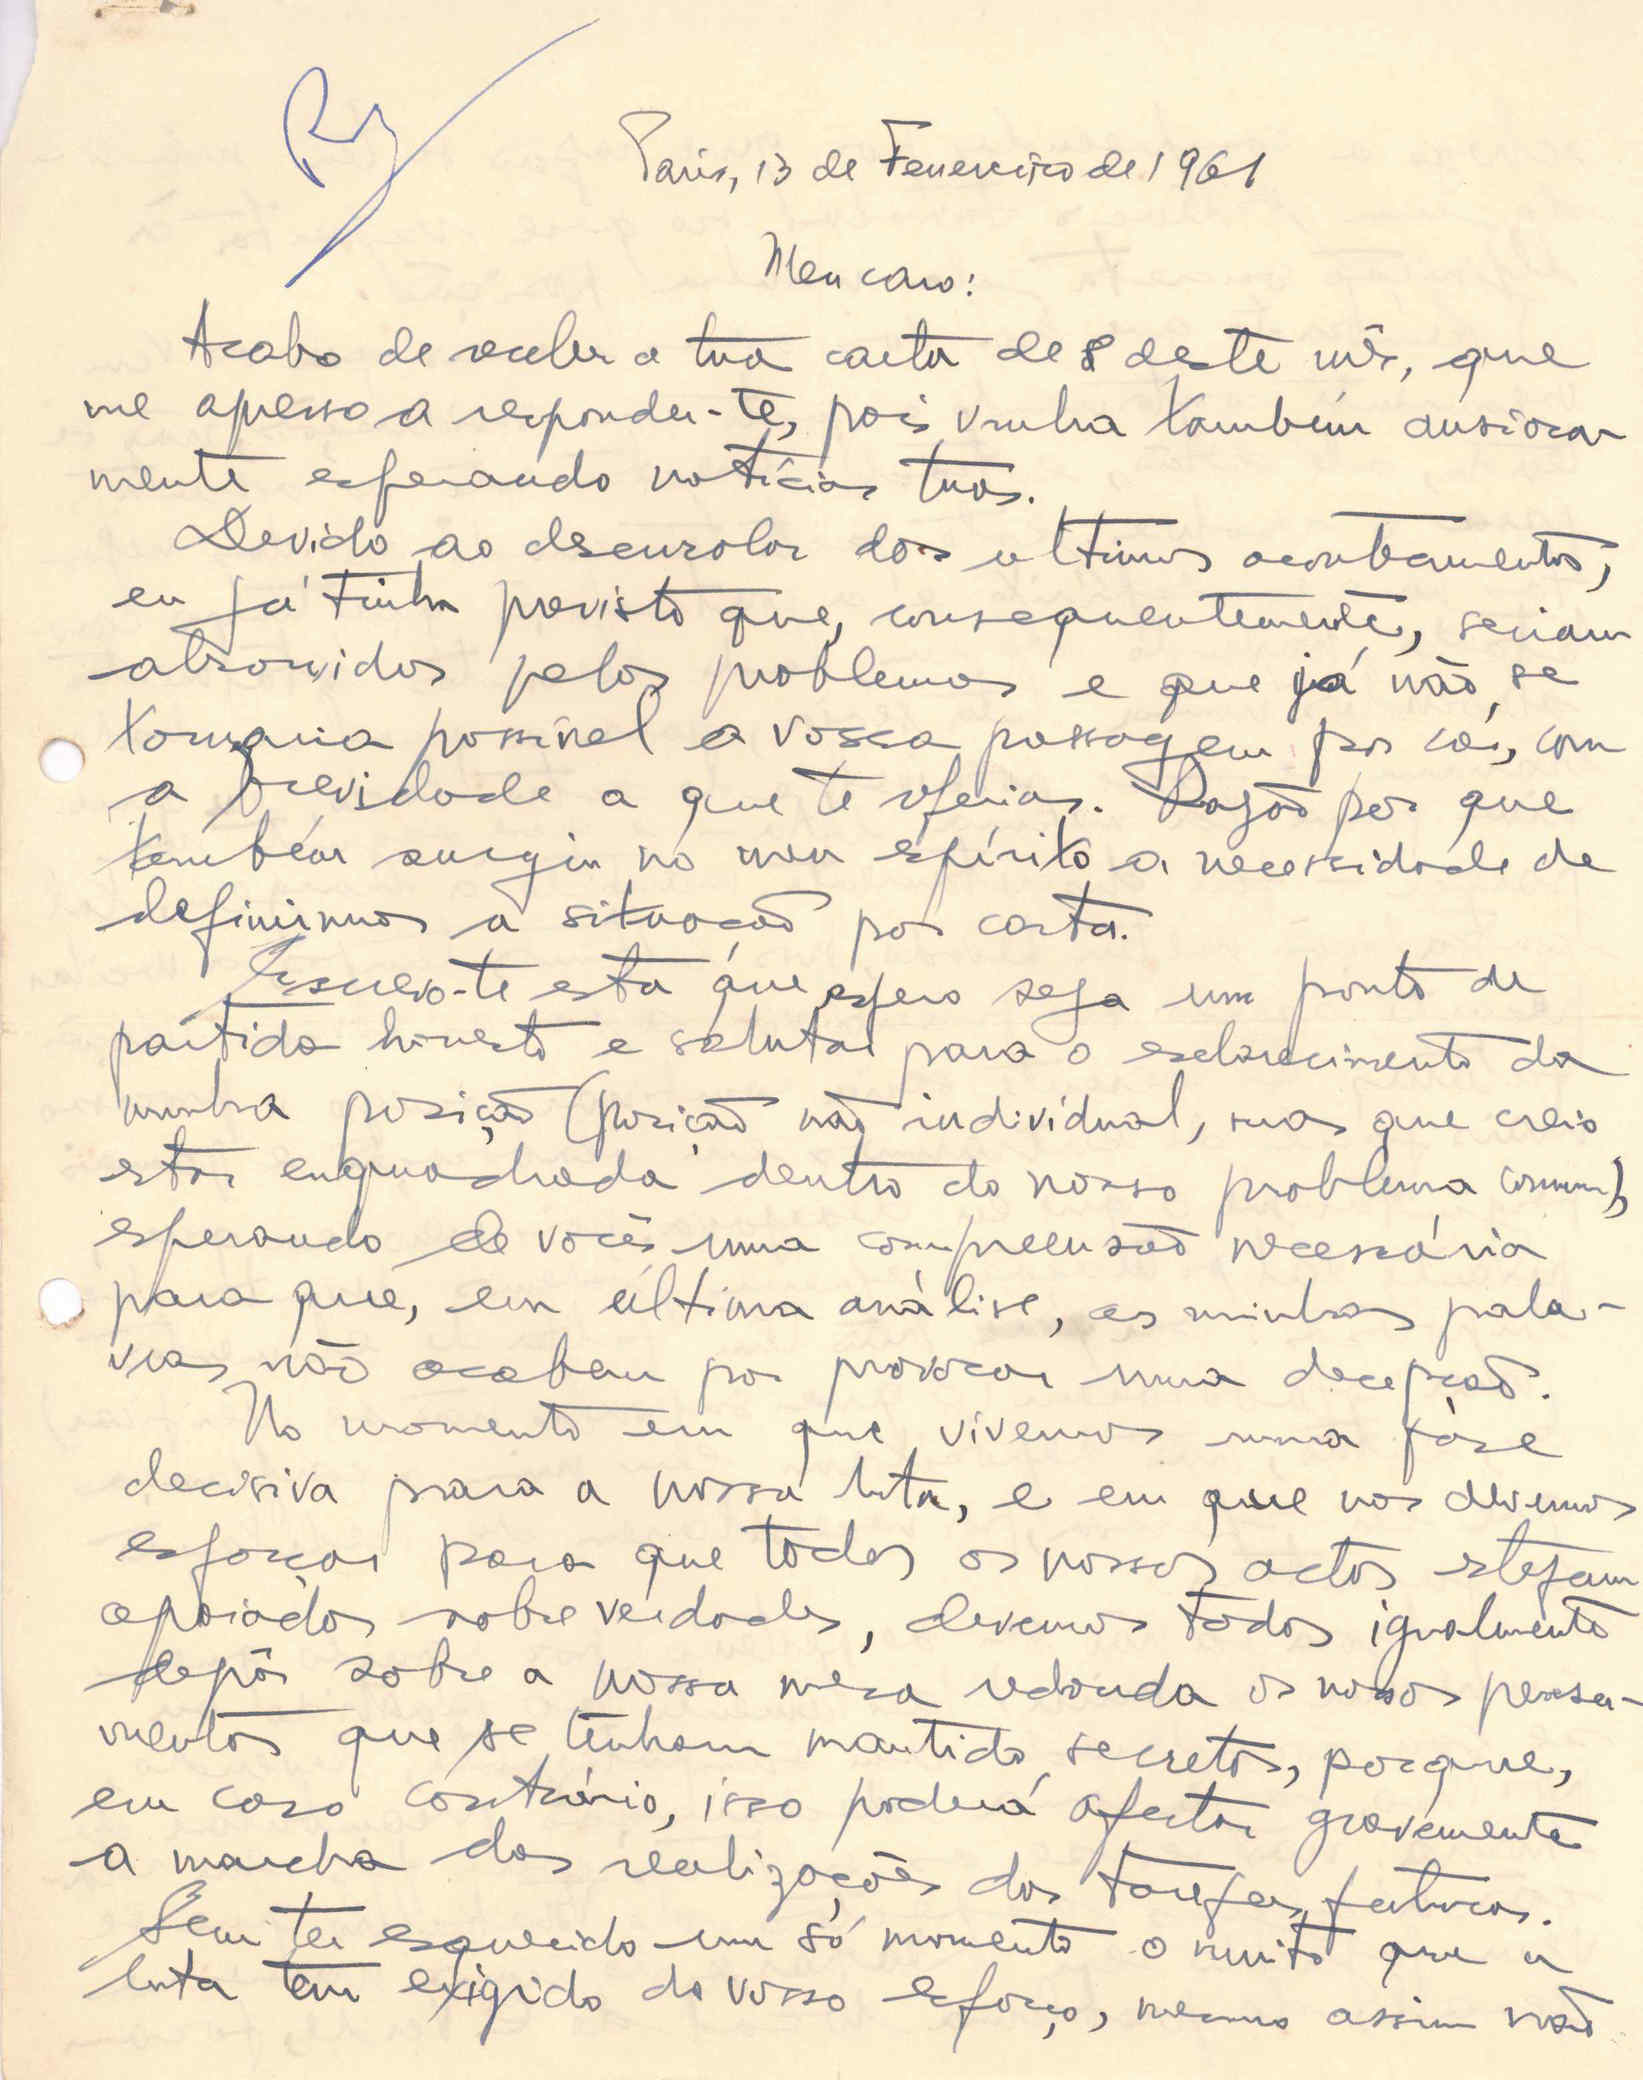 Paris, 13 de Fevereiro de 1961
Meu caro:
Acabo de receber a tua carta de 8 deste mês, que
me apresso a responder-te, pois vinha também ansiosa-
mente esperando notícias tuas.
Devido ao desenrolar dos ultimos acontecimentos,
eu já tinha previsto que, consequentemente, seriam
absorvidos pelos problemas e que já não se
tornaria possível a vossa passagem por cá, com
a brevidade a que te referias. Razão por que
também surgiu no meu espírito a necessidade de
definirmos a situação por carta.
Escrevo-te esta que espero seja um ponto de
partida honesto e salutar para o esclarecimento da
minha posição (posição não individual, mas que creio
estar enquadrada dentro do nosso problema comum),
esperando de vocês uma compreensão necessária
para que, em última análise, as minhas pala-
vras não acabem por provocar uma decepção.
No momento em que vivemos uma fase
decisiva para a nossa luta, e em que nos devemos
esforçar para que todos os nossos actos estejam
apoiados sobre verdades, devemos todos igualmente
depôr sobre a nossa mesa redonda os nossos pensa-
mentos que se tenham mantido secretos, porque,
em caso contrário, isso poderá afectar gravemente
a marcha das realizações das tarefas futuras.
Sem ter esquecido um só momento o muito que a
luta tem exigido do vosso esforço, mesmo assim não